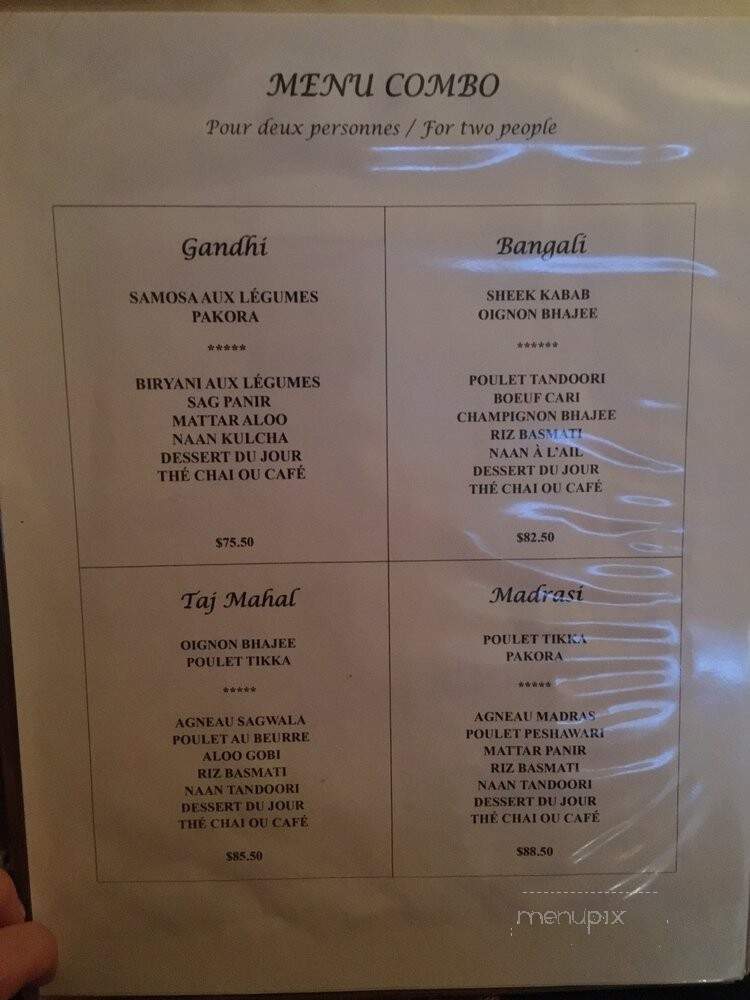 MENU COMBO
Pour deux personnes / For two people
Gandhi
SAMOSA AUX LÉGUMES
PAKORA
*****
BIRYANI AUX LÉGUMES
SAG PANIR
MATTAR ALOO
NAAN KULCHA
DESSERT DU JOUR
THÉ CHAI OU CAFÉ
$75.50
Bangali
SHEEK KABAB
OIGNON BHAJEE
******
POULET TANDOORI
BOEUF CARI
CHAMPIGNON BHAJEE
RIZ BASMATI
NAAN À L'AIL
DESSERT DU JOUR
THÉ CHAI OU CAFÉ
$82.50
Taj Mahal
OIGNON BHAJEE
POULET TIKKA
*****
AGNEAU SAGWALA
POULET AU BEURRE
ALOO GOBI
RIZ BASMATI
NAAN TANDOORI
DESSERT DU JOUR
THÉ CHAI OU CAFÉ
$85.50
Madrasi
POULET TIKKA
PAKORA
*****
AGNEAU MADRAS
POULET PESHAWARI
MATTAR PANIR
RIZ BASMATI
NAAN TANDOORI
DESSERT DU JOUR
THÉ CHAI OU CAFÉ
$88.50
menupix